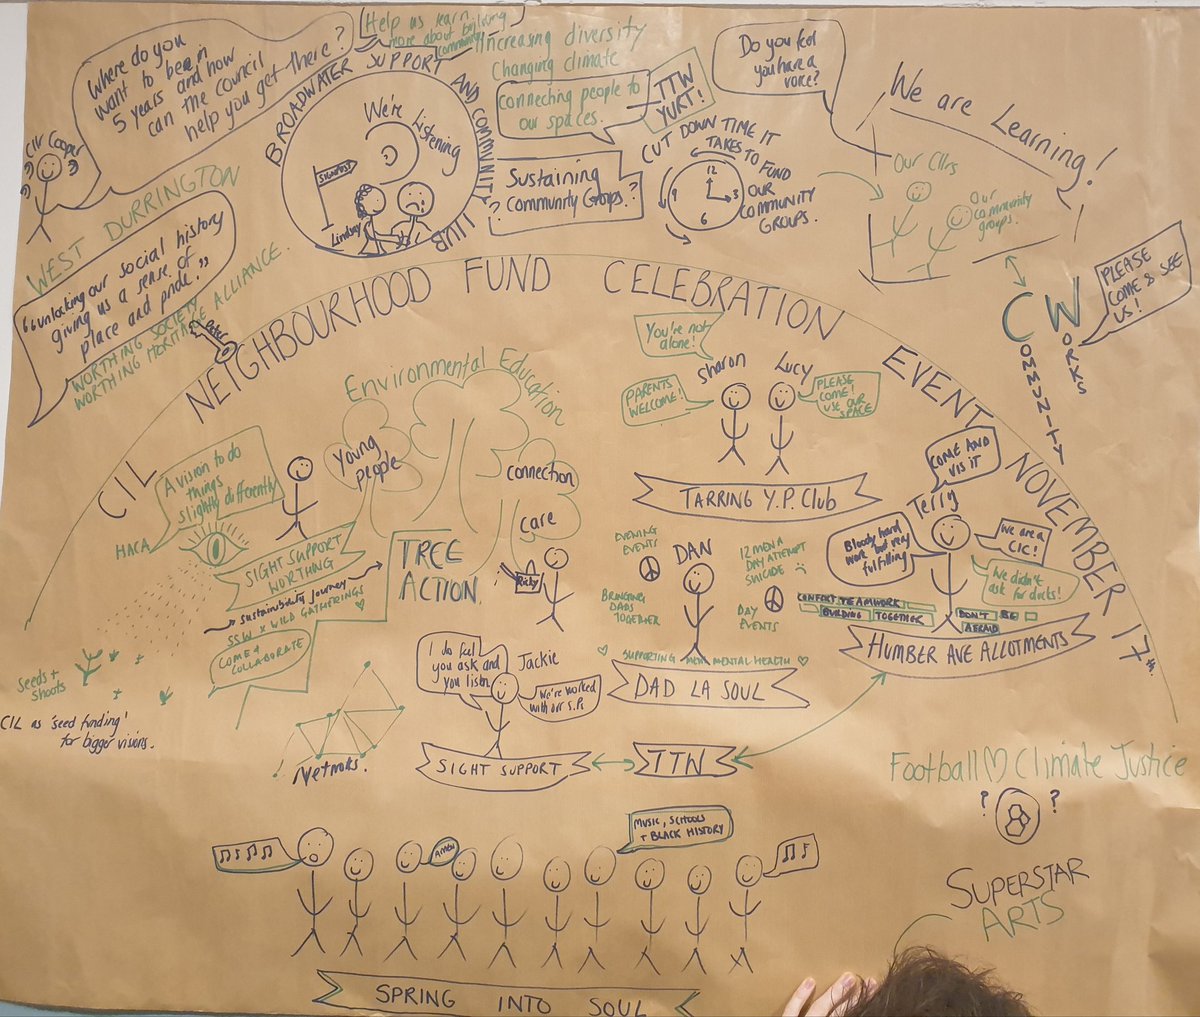 Where do you
want to be in
5 years and how
can the council
help you get there?
CIV Cooper
Help us learn
more about building
community
BROADWATER SUPPORT AND COMMUNITY HUB
We're Listening
SIGNPOST
Lindsay
Increasing diversity
Changing climate
Connecting people to
our spaces.
TTW
YURT!
Sustaining
Community Groups.?
CUT DOWN TIME IT
TAKES TO FUND
OUR
COMMUNITY
GROUPS.
12
3
6
9
Do you feel
you have a
voice?
We are Learning!
Our Cllrs
Our
community
groups.
COMMUNITY
WORKS
PLEASE
COME & SEE
US!
WEST DURRINGTON
"Unlocking our social history
giving us a sense of
place and pride."
WORTHING SOCIETY
WORTHING HERITAGE ALLIANCE.
Peter
CIL NEIGHBOURHOOD FUND CELEBRATION EVENT NOVEMBER 17th
Environmental Education
Young
people
connection
care
TREE
ACTION.
Ricky
A vision to do
things
slightly differently
HACA
SIGHT SUPPORT
WORTHING
sustainability journey
SSW x WILD GATHERINGS
COME &
COLLABORATE
Seeds +
Shoots
CIL as 'seed funding'
for bigger visions.
Networks.
You're not
alone!
Sharon
Lucy
PARENTS
WELCOME!
PLEASE
COME!
USE OUR
SPACE
TARRING Y.P. Club
EVENING
EVENTS
DAN
12 MEN A
DAY ATTEMPT
SUICIDE
BRINGING
DADS
TOGETHER
DAY
EVENTS
SUPPORTING MEN MENTAL HEALTH
DAD LA SOUL
COME AND
VISIT
Terry
Bloody hard
work but very
fulfilling
We are a
CIC!
We didn't
ask for ducks!
COMFORT TEAMWORK
BUILDING TOGETHER
DON'T BE
AFRAID
HUMBER AVE ALLOTMENTS
I do feel
you ask and
you listen
Jackie
We're worked
with our S.P.
SIGHT SUPPORT
TTW
Football Climate Justice
? ?
SUPERSTAR
ARTS
AMEN
MUSIC, SCHOOLS
+ BLACK HISTORY
SPRING INTO SOUL